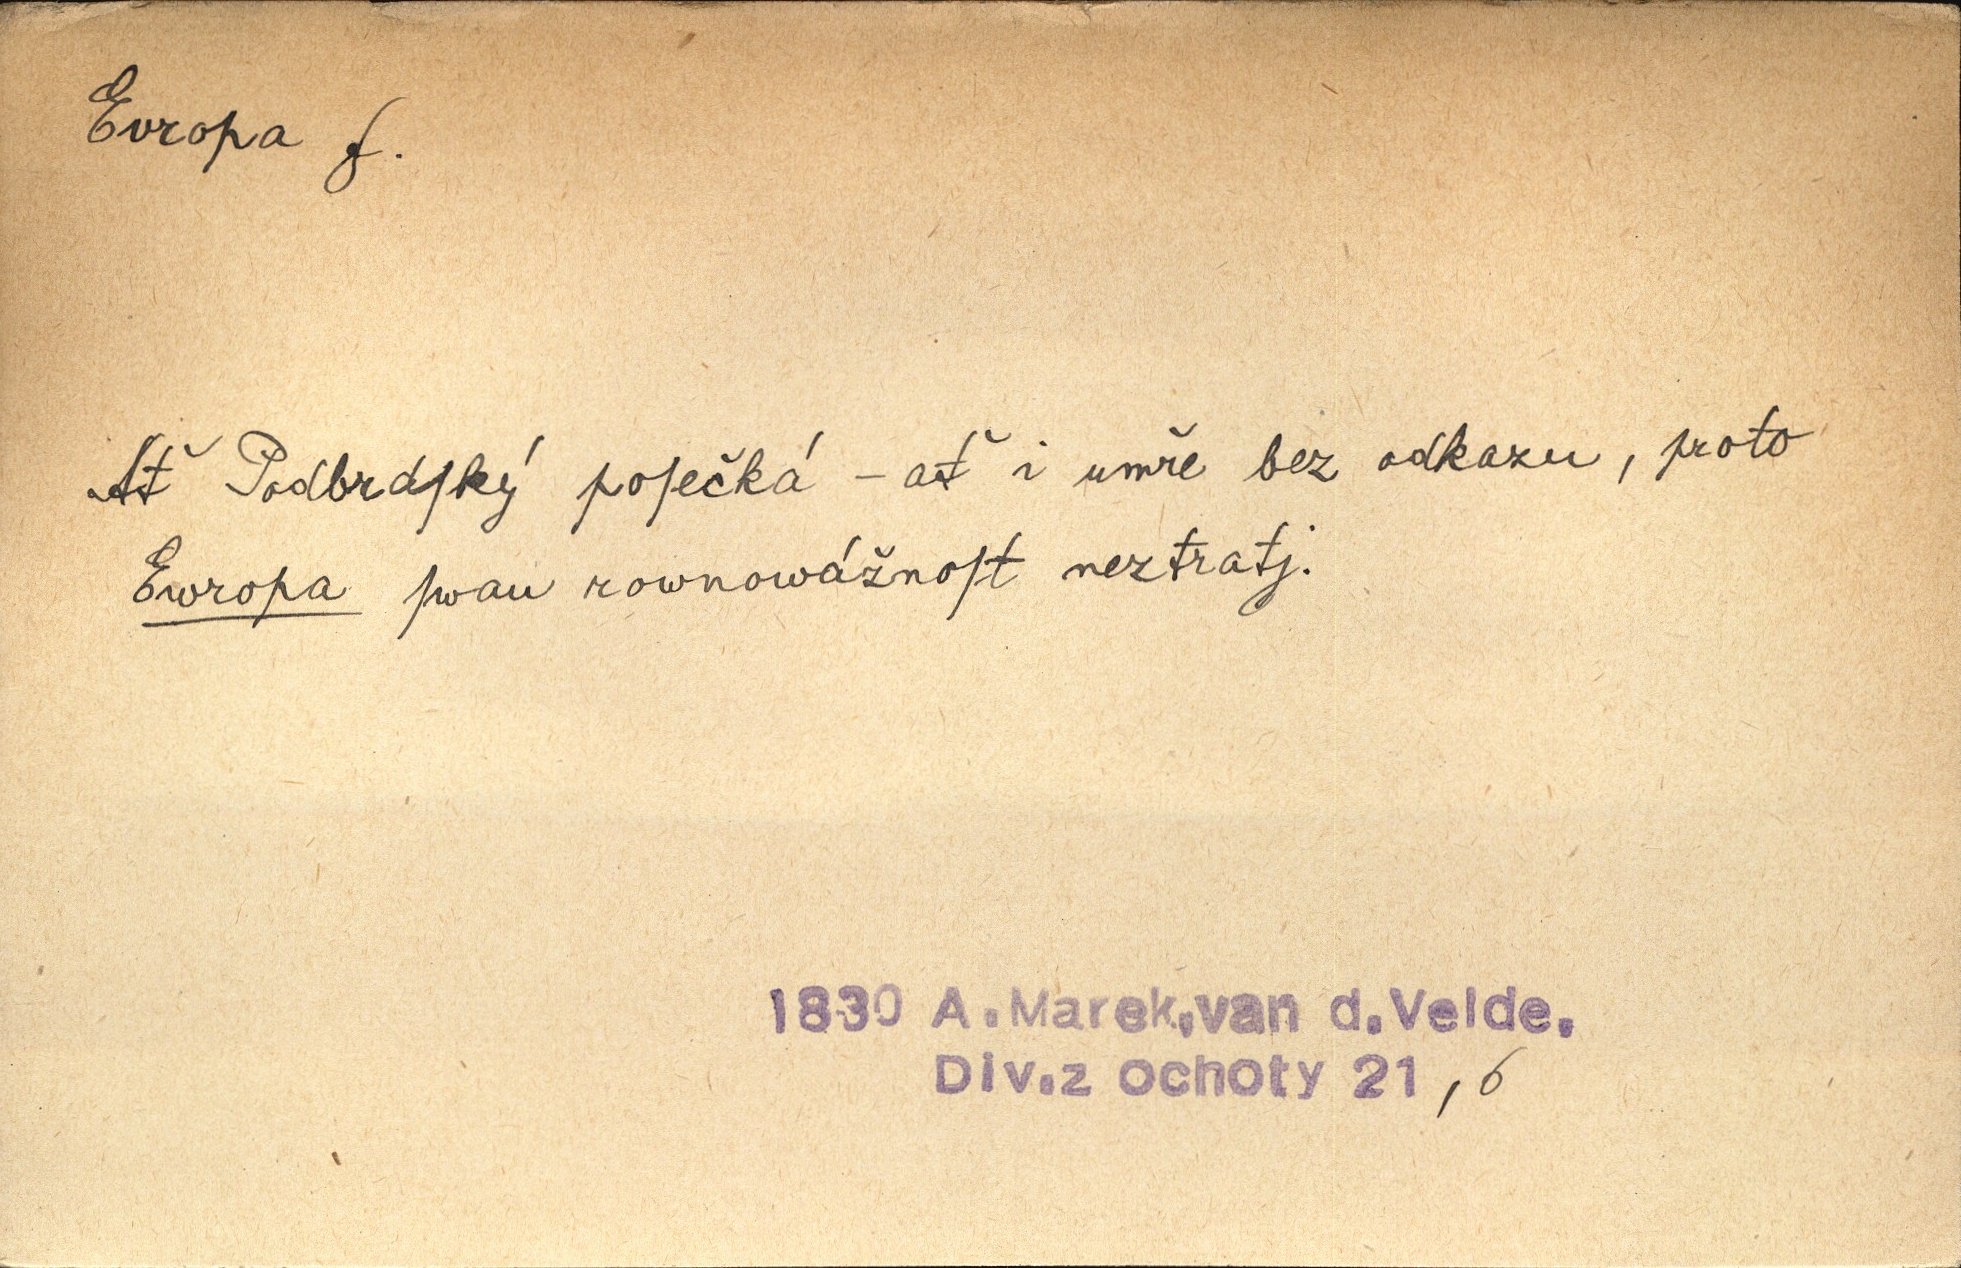 Evropa f.
Ať Podbrdſký poſečká – ať i umře bez odkazu, proto
Ewropa ſwau rownowážnoſt neztratj.
1830 A.Marek,van d.Velde.
Div.z ochoty 21,6